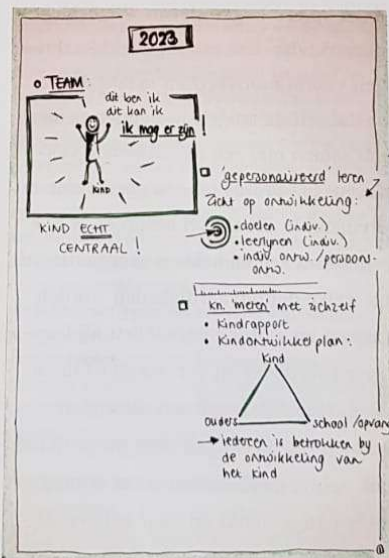 2023
o TEAM:
dit ben ik
dit kan ik
ik mag er zijn!
KIND
KIND ECHT
CENTRAAL!
'gepersonaliseerd' leren
Zicht op ontwikkeling:
• doelen (indiv.)
• leerlijnen (indiv.)
• indiv. ontw./persoons-
ontw.
kn. 'meten' met zichzelf
• Kindrapport
• Kindontwikkelplan:
kind
ouders school/opvang
→ iedereen is betrokken by
de ontwikkeling van
het kind